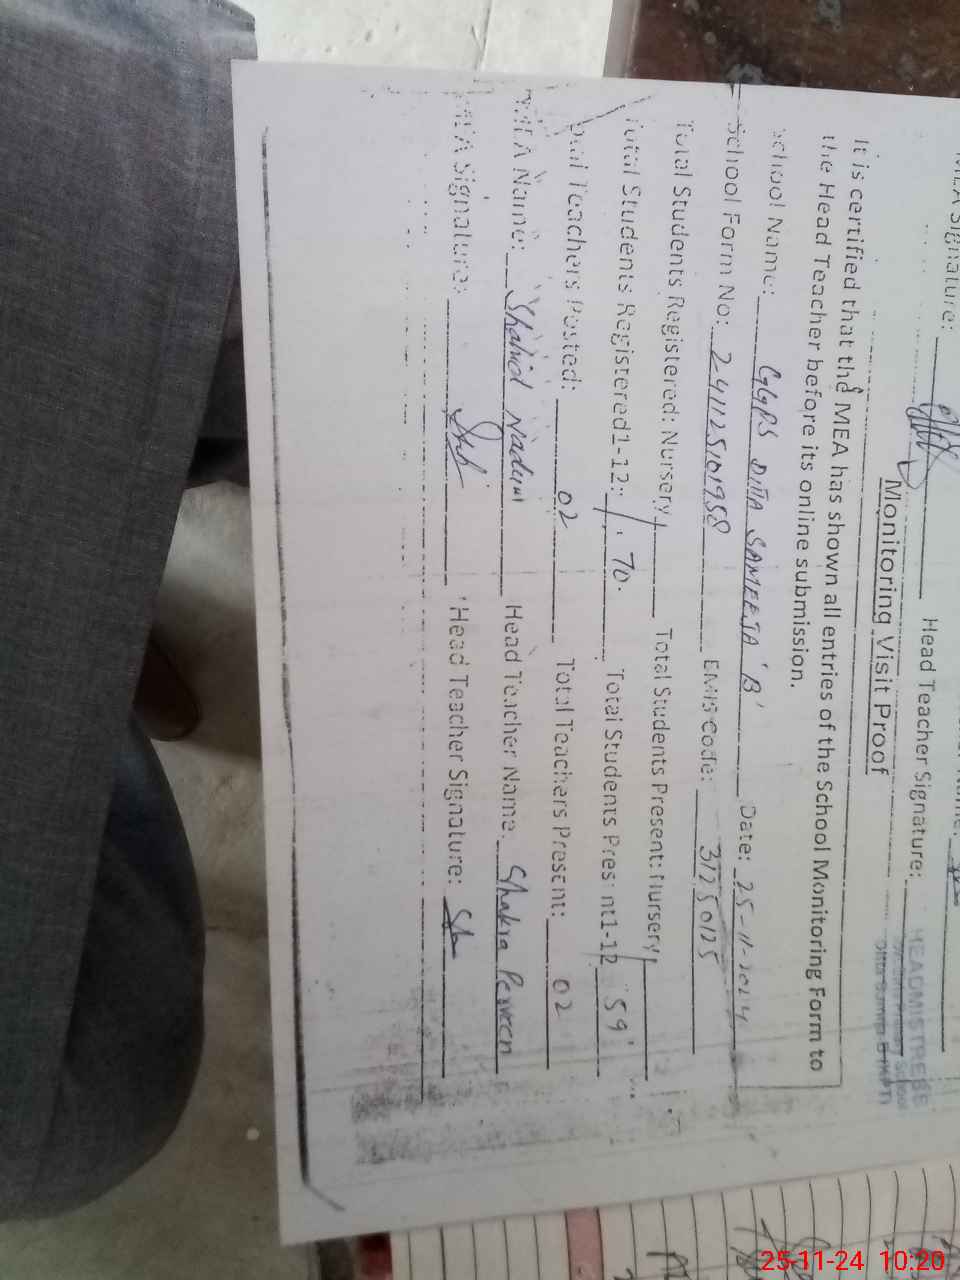 MEA Signature: Head Teacher Signature:
HEADMISTRESS
Monitoring Visit Proof
It is certified that the MEA has shown all entries of the School Monitoring Form to
the Head Teacher before its online submission.
School Name: GGPS DITTA SAMEEJA 'B' Date: 25-11-2024
School Form No: 241125101958 EMIS Code: 31250125
Total Students Registered: Nursery Total Students Present: Nursery
Total Students Registered1-12: 70 Total Students Present1-12 59
Total Teachers Posted: 02 Total Teachers Present: 02
MEA Name: Shahid Nadeem Head Teacher Name: Shakra Perveen
MEA Signature: Head Teacher Signature:
25-11-24 10:20